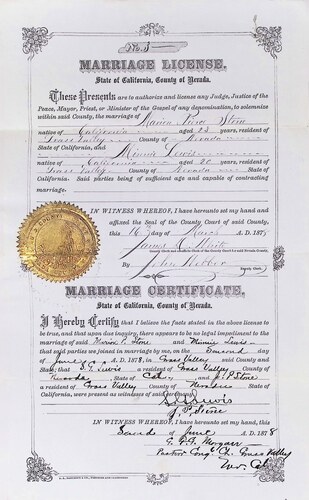 No. 8
MARRIAGE LICENSE.
State of California, County of Nevada.
These Presents are to authorize and license any Judge, Justice of the
Peace, Mayor, Priest, or Minister of the Gospel of any denomination, to solemnize
within said County, the marriage of
native of California aged 23 years, resident of
Grass Valley County of Nevada
State of California, and Minnie Lewis
native of California aged 20 years, resident of
Grass Valley County of Nevada State of
California. Said parties being of sufficient age and capable of contracting
marriage.
IN WITNESS WHEREOF, I have hereunto set my hand and
affixed the Seal of the County Court of said County,
this 16 day of March A.D. 1878
James
By John Webber
Deputy Clerk.
MARRIAGE CERTIFICATE.
State of California, County of Nevada.
I Hereby Certify that I believe the facts stated in the above license
to be true, and that upon due inquiry, there appears to be no legal impediment to the
marriage of said Stone and Minnie Lewis
that said parties were joined in marriage by me, on the Second day
of June A.D. 1878, in Grass Valley
that, S. T. Lewis a resident of Grass Valley County of
Nevada State of and J. P. Stone
a resident of Grass Valley County of Nevada State
of California, were present as witnesses of said
S. T. Lewis
J. P. Stone
IN WITNESS WHEREOF, I have hereunto set my hand, this
Second of June A.D. 1878
Morgan
Pastor Cong. Ch. Grass Valley